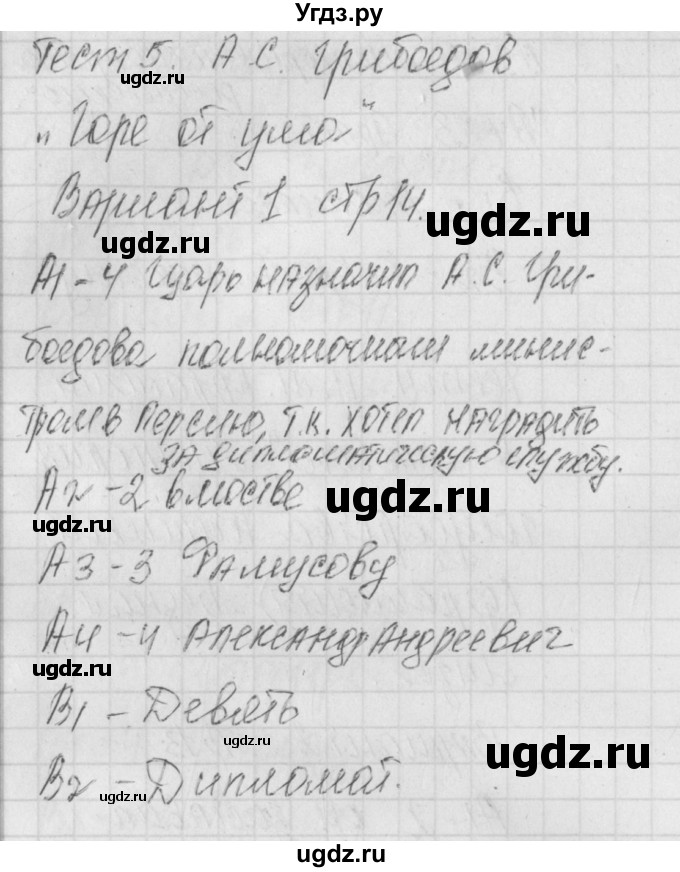 Угдз.ру
Тест 5. А.С. Грибоедов
„Горе от ума"
Вариант 1 стр 14.
А1 - 4 Царь назначил А.С. Гри-
боедова полномочным минис-
тром в Персию, т.к. хотел наградить
за дипломатическую службу.
А2 - 2
А3 - 3 Фамусову
А4 - 4 Александр Андреевич
В1 - Девять
В2 - Дипломат.
ugdz.ru
ugdz.ru
ugdz.ru
ugdz.ru
ugdz.ru
ugdz.ru
ugdz.ru
ugdz.ru
ugdz.ru
ugdz.ru
ugdz.ru